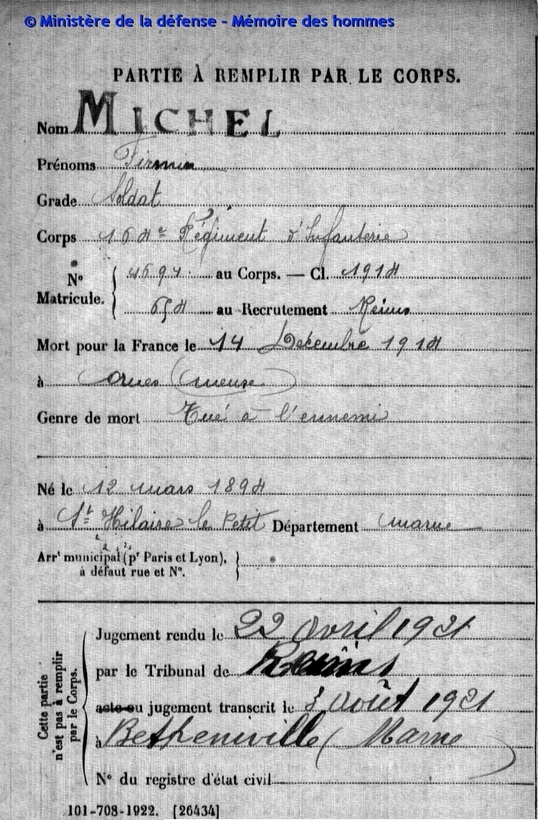 © Ministère de la défense - Mémoire des hommes
PARTIE À REMPLIR PAR LE CORPS.
Nom MICHEL
Prénoms Firmin
Grade Soldat
Corps 164e Régiment d'Infanterie
No Matricule. 4694 au Corps. — Cl. 1914
654 au Recrutement Reims
Mort pour la France le 14 Décembre 1914
à Ornes (Meuse)
Genre de mort Tué à l'ennemi
Né le 12 mars 1894
à St Hilaire le Petit Département Marne
Arrt municipal (pr Paris et Lyon),
à défaut rue et No.
Cette partie n'est pas à remplir par le Corps.
Jugement rendu le 22 Avril 1921
par le Tribunal de Reims
acte ou jugement transcrit le 3 Août 1921
à Betheniville (Marne)
No du registre d'état civil
101-708-1922. [26434]